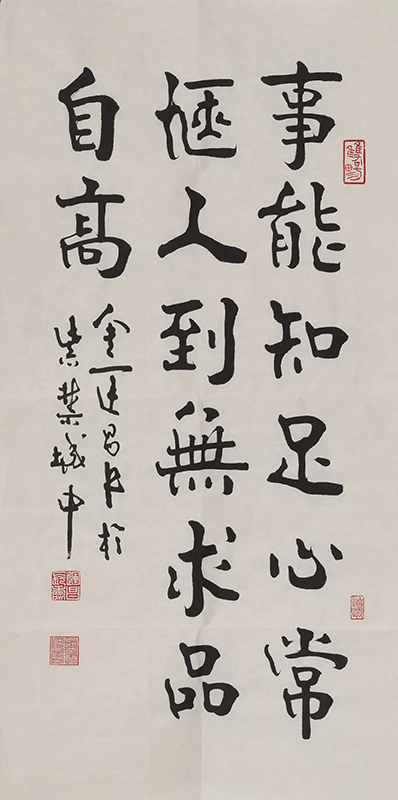 事能知足心常
愜人到無求品
自高
金運昌书於
紫禁城中